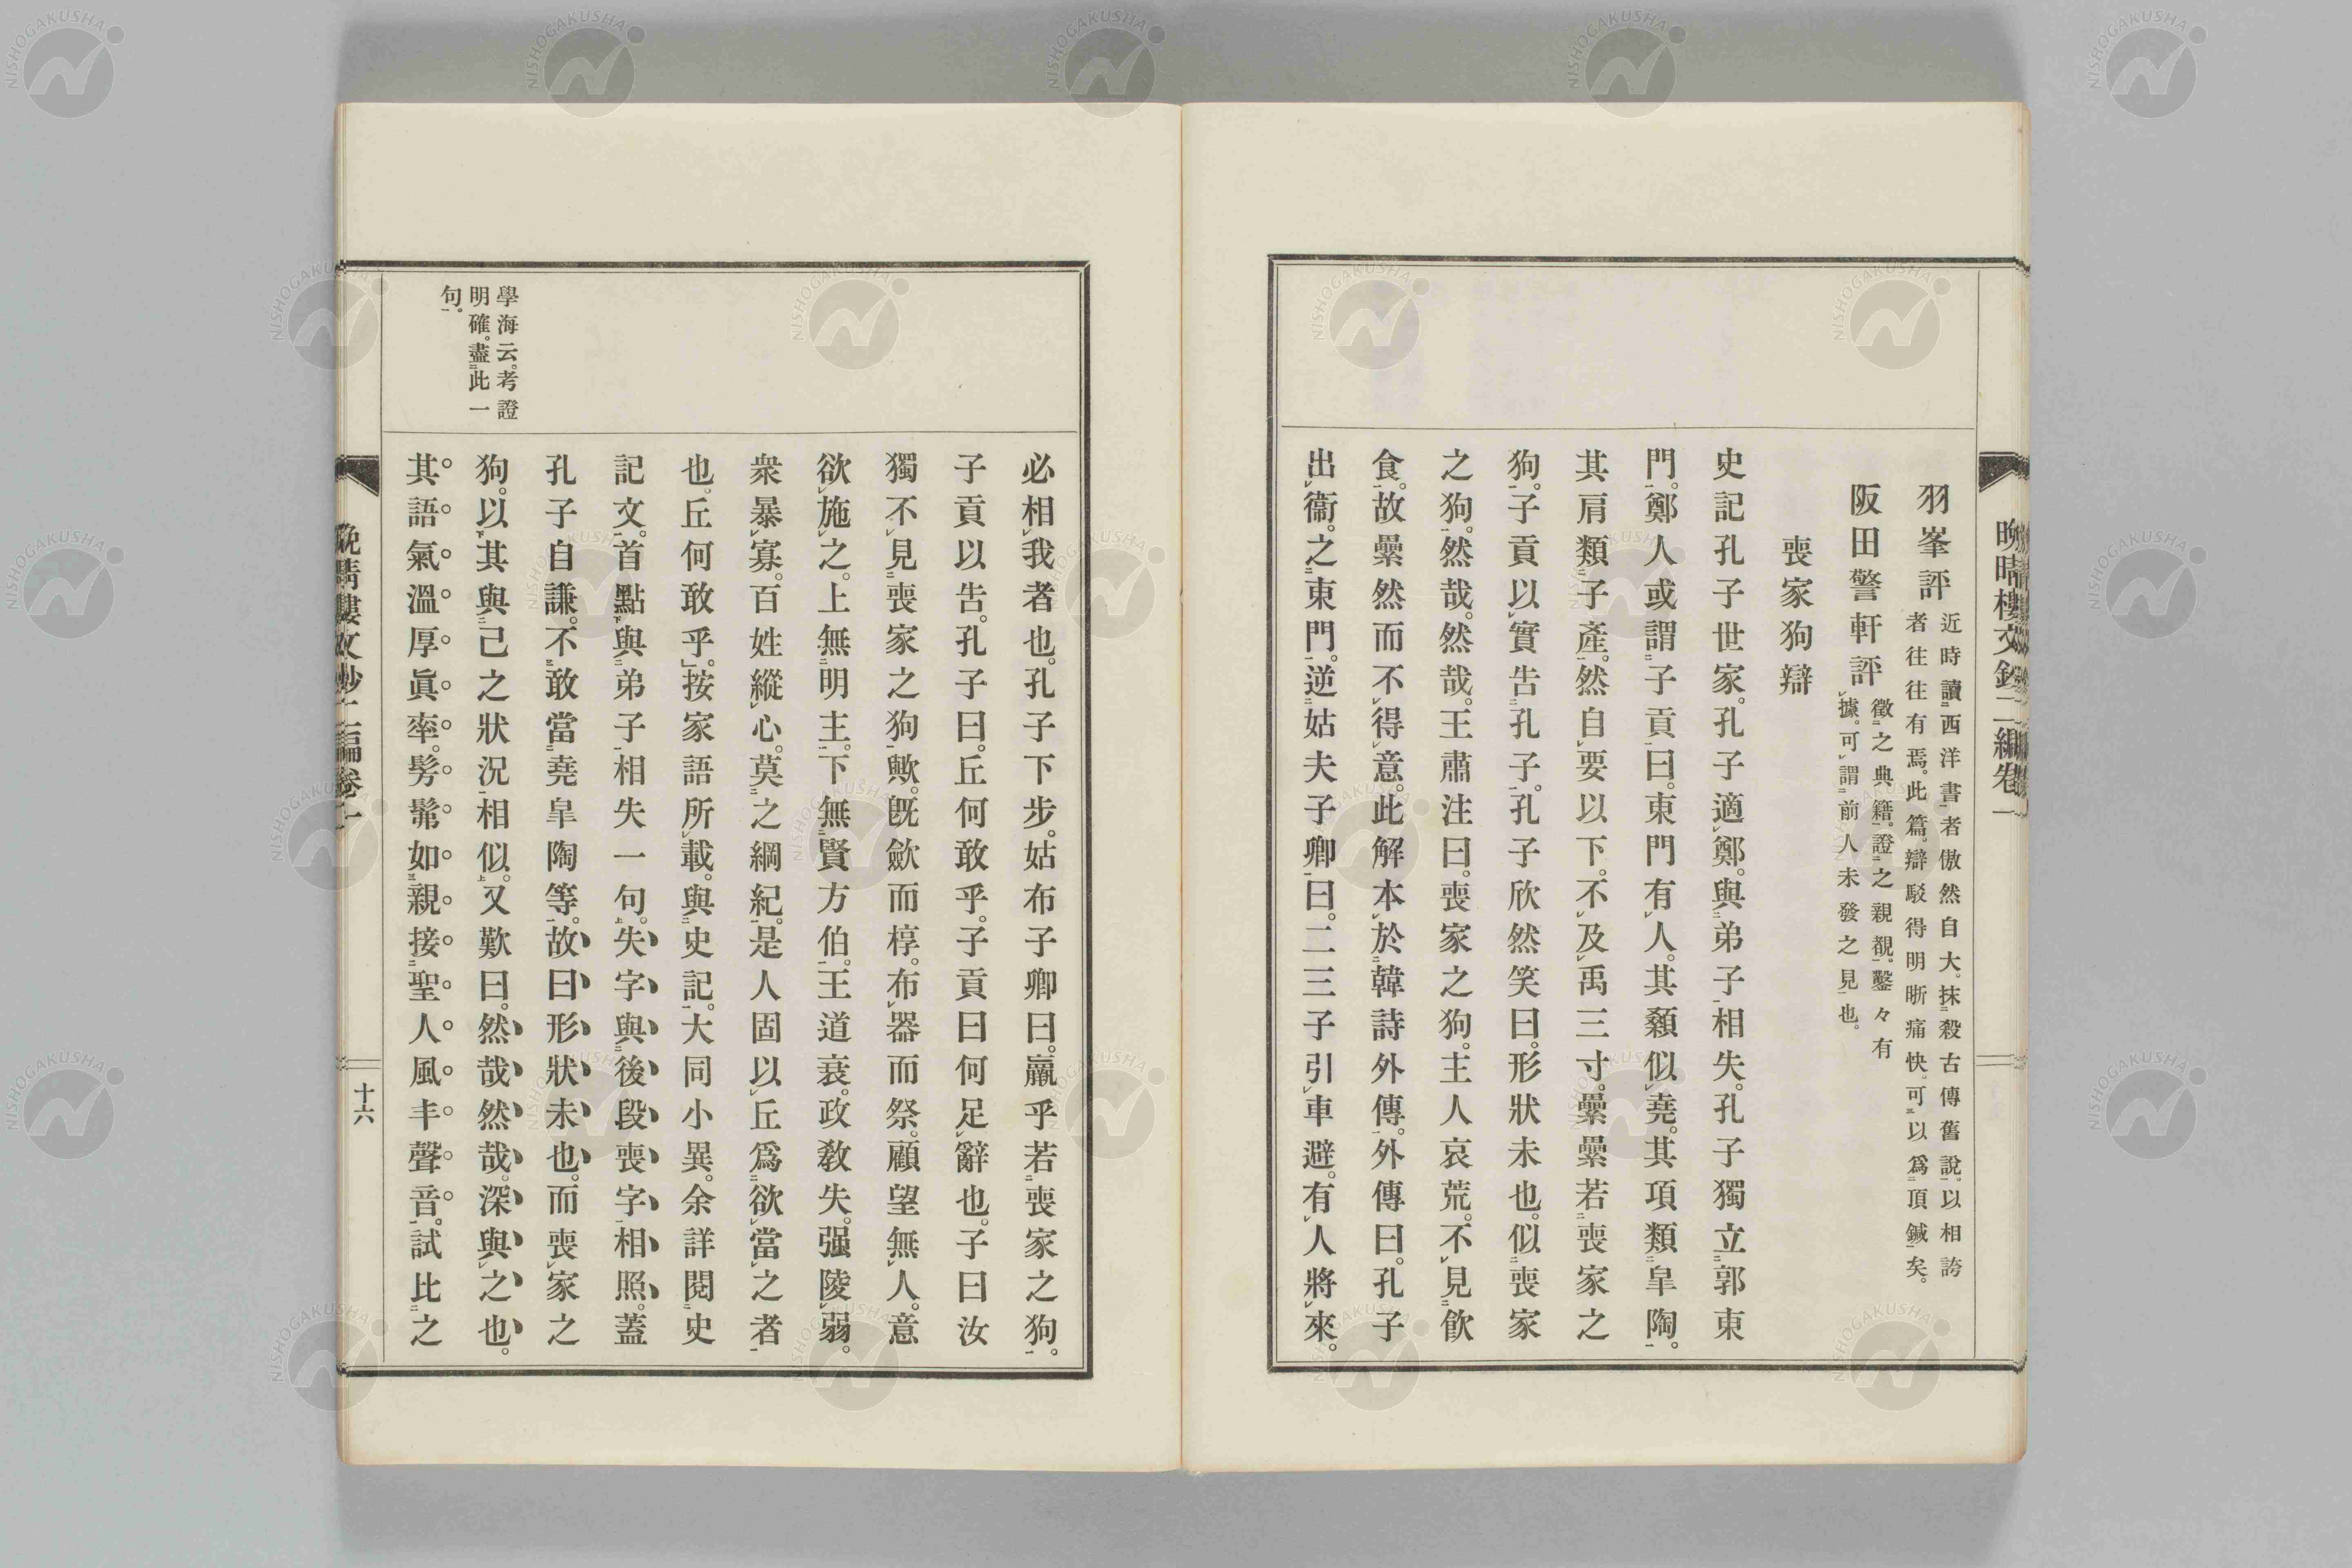 晩晴樓文鈔二編卷一
羽峯評
近時讀西洋書者傲然自大。抹殺古傳舊說。以相誇
者往往有焉。此篇。辯駁得明晰痛快。可以爲頂鍼矣。
阪田警軒評
徵之典籍。證之親覩。鑿々有
據。可謂前人未發之見也。
喪家狗辯
史記孔子世家。孔子適鄭。與弟子相失。孔子獨立郭東
門。鄭人或謂子貢曰。東門有人。其顙似堯。其項類皐陶。
其肩類子產。然自要以下。不及禹三寸。纍纍若喪家之
狗。子貢以實告孔子。孔子欣然笑曰。形狀未也。似喪家
之狗。然哉。然哉。王肅注曰。喪家之狗。主人哀荒。不見飮
食。故纍然而不得意。此解本於韓詩外傳。外傳曰。孔子
出衞。之東門。逆姑夫子卿曰。二三子引車避。有人將來。
必相我者也。孔子下步。姑布子卿曰。羸乎若喪家之狗。
子貢以告。孔子曰。丘何敢乎。子貢曰何足辭也。子曰汝
獨不見喪家之狗歟。旣斂而椁。布器而祭。顧望無人。意
欲施之。上無明主。下無賢方伯。王道衰。政敎失。强陵弱。
衆暴寡。百姓縱心。莫之綱紀。是人固以丘爲欲當之者
也。丘何敢乎。」按家語所載。與史記。大同小異。余詳閱史
記文。首點與弟子相失一句。失字與後段喪字相照。蓋
孔子自謙。不敢當堯皐陶等。故曰形狀未也。而喪家之
狗。以其與己之狀況相似。又歎曰。然哉然哉。深與之也。
其語氣溫厚眞率。髣髴如親接聖人風丰聲音。試比之
學海云。考證
明確。盡此一
句。
晩晴樓文鈔二編卷一
十六